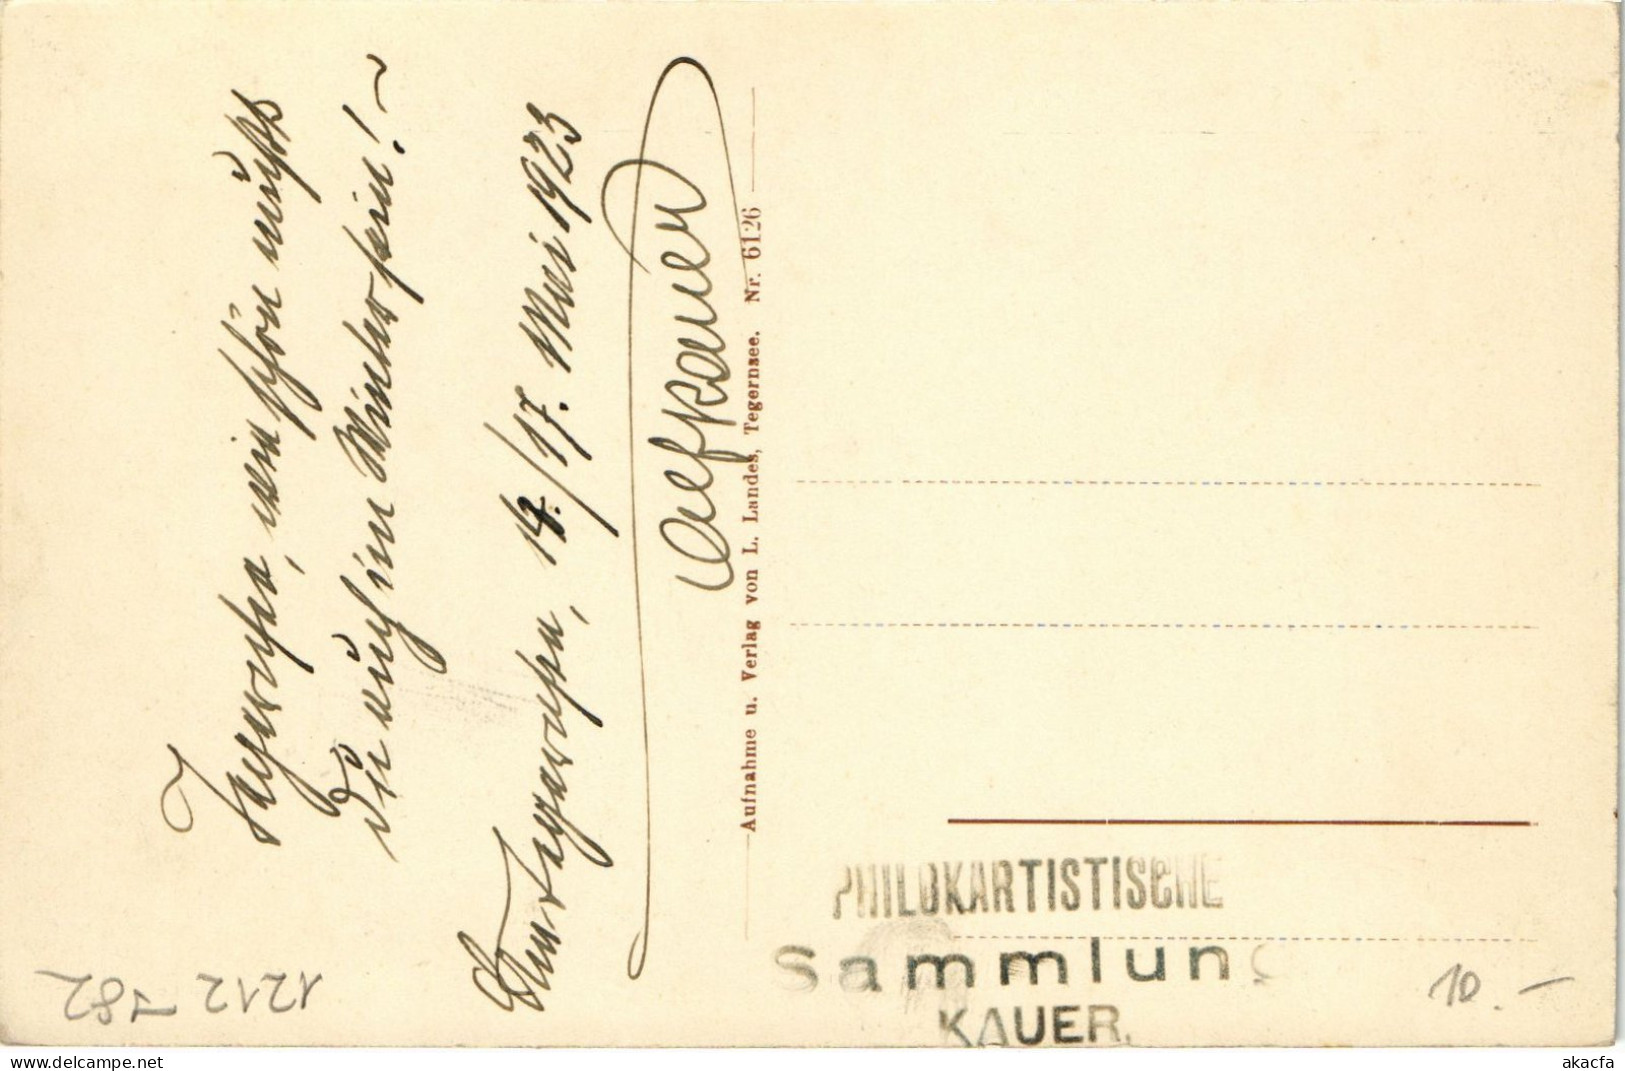 Tegernsee, wie schön mußt
Du auch im Winter sein! ~
Tegernsee, 14./17. Mai 1923
Aufnahme u. Verlag von L. Landes, Tegernsee. Nr. 6126
PHILOKARTISTISCHE
Sammlung
KAUER.
10.-
1212 782
akacfa